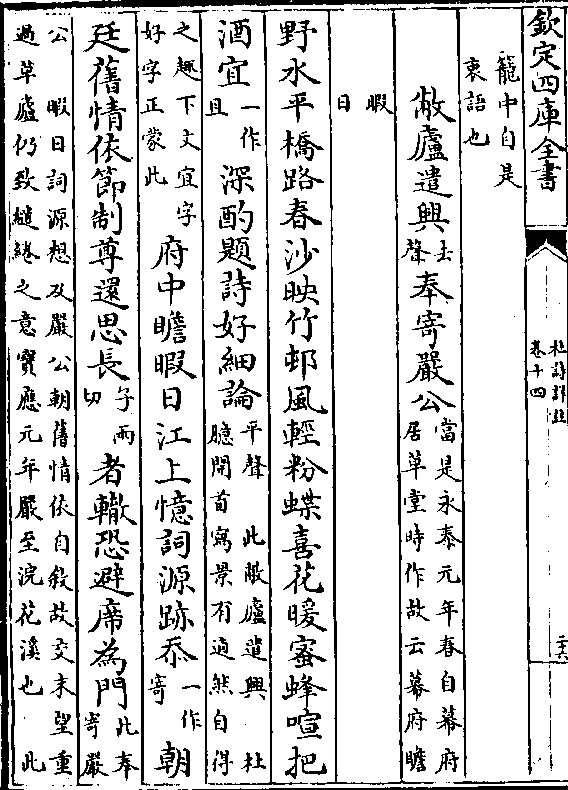 欽定四庫全書
杜詩詳註
卷十四
二十六
籠中自是
衷語也
敝廬遣興去聲奉寄嚴公當是永泰元年春自幕府
居草堂時作故云幕府瞻
暇
日
野水平橋路春沙映竹邨風輕粉蝶喜花暖蜜蜂喧把
酒宜一作且深酌題詩好細論平聲 此敝廬遣興 杜
臆開首寫景有適然自得
之趣下文宜字
好字正蒙此 府中瞻暇日江上憶詞源跡忝一作寄朝
廷舊情依節制尊還思長子兩切者轍恐避席為門此奉
寄嚴
公 暇日詞源想及嚴公朝舊情依自敘故交末望重
過草廬仍致繾綣之意寶應元年嚴至浣花溪也 此